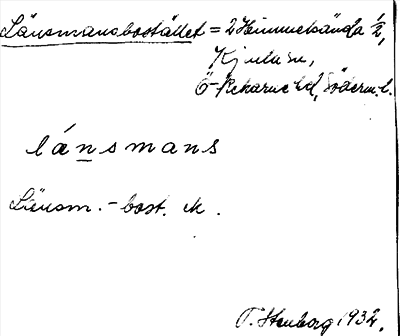 Länsmansbostället = 2 Himmelsända 1/2,
Kjulasn,
Ö-Rekarne hd, Söderm. l.
lánsmans
Länsm. - bost. ek.
T. Stenborg 1932.